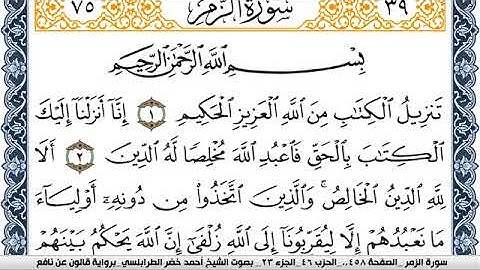 ٧٥ سُورَةُ الزُّمَرِ ٣٩
بِسْمِ اللَّهِ الرَّحْمَٰنِ الرَّحِيمِ
تَنزِيلُ الْكِتَٰبِ مِنَ اللَّهِ الْعَزِيزِ الْحَكِيمِ ١ إِنَّآ أَنزَلْنَآ إِلَيْكَ
الْكِتَٰبَ بِالْحَقِّ فَاعْبُدِ اللَّهَ مُخْلِصًا لَّهُ الدِّينَ ٢ أَلَا
لِلَّهِ الدِّينُ الْخَالِصُ وَالَّذِينَ اتَّخَذُوا مِن دُونِهِۦٓ أَوْلِيَآءَ
مَا نَعْبُدُهُمْ إِلَّا لِيُقَرِّبُونَآ إِلَى اللَّهِ زُلْفَىٰٓ إِنَّ اللَّهَ يَحْكُمُ بَيْنَهُمْ
سورة الزمر _ الصفحة ٤٥٨.. الحزب ٤٦_ الجزء ٢٣_ بصوت الشيخ أحمد خضر الطرابلسي_برواية قالون عن نافع